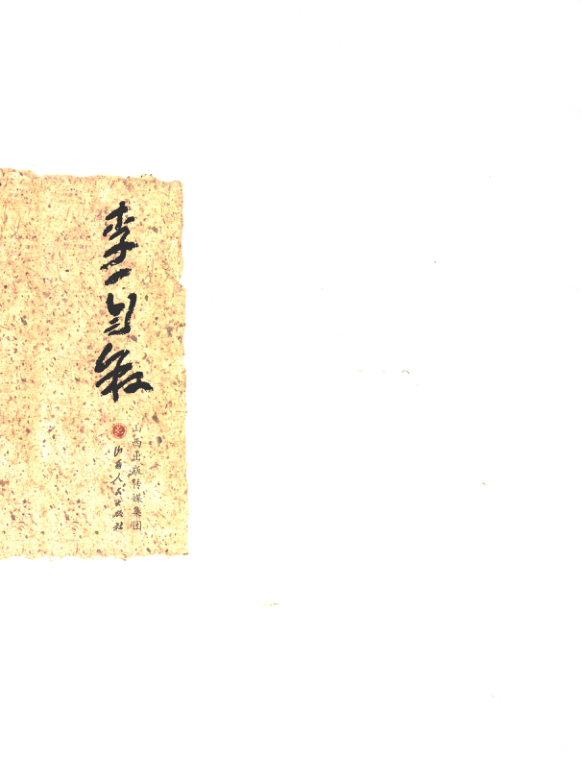 李一自叙
山西出版传媒集团
山西人民出版社